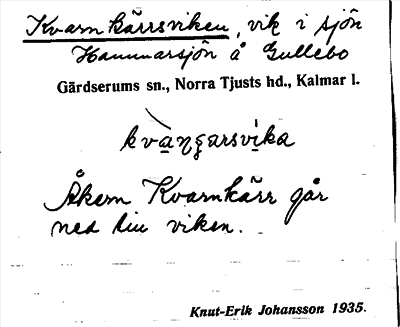 Kvarnkärrsviken, vik i sjön
Hammarsjön å Gullebo
Gärdserums sn., Norra Tjusts hd., Kalmar l.
Åkern Kvarnkärr går
ned till viken.
Knut-Erik Johansson 1935.